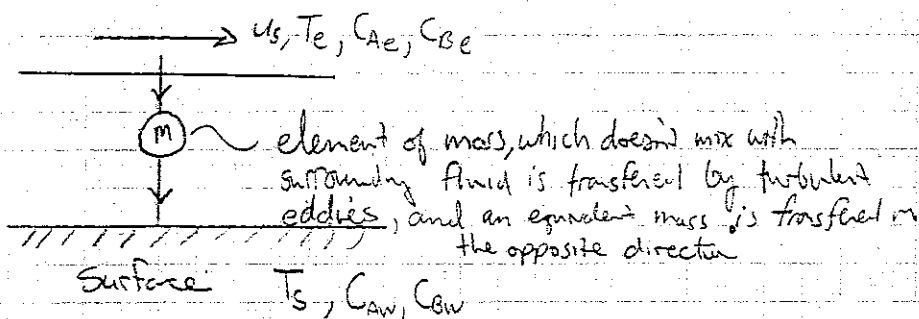 us, Te, CAe, CBe
m
element of mass, which doesn't mix with
surroundy fluid is transfered by turbulent
eddies, and an equivalent mass is transfered in
the opposite direction
Surface Ts, CAw, CBw